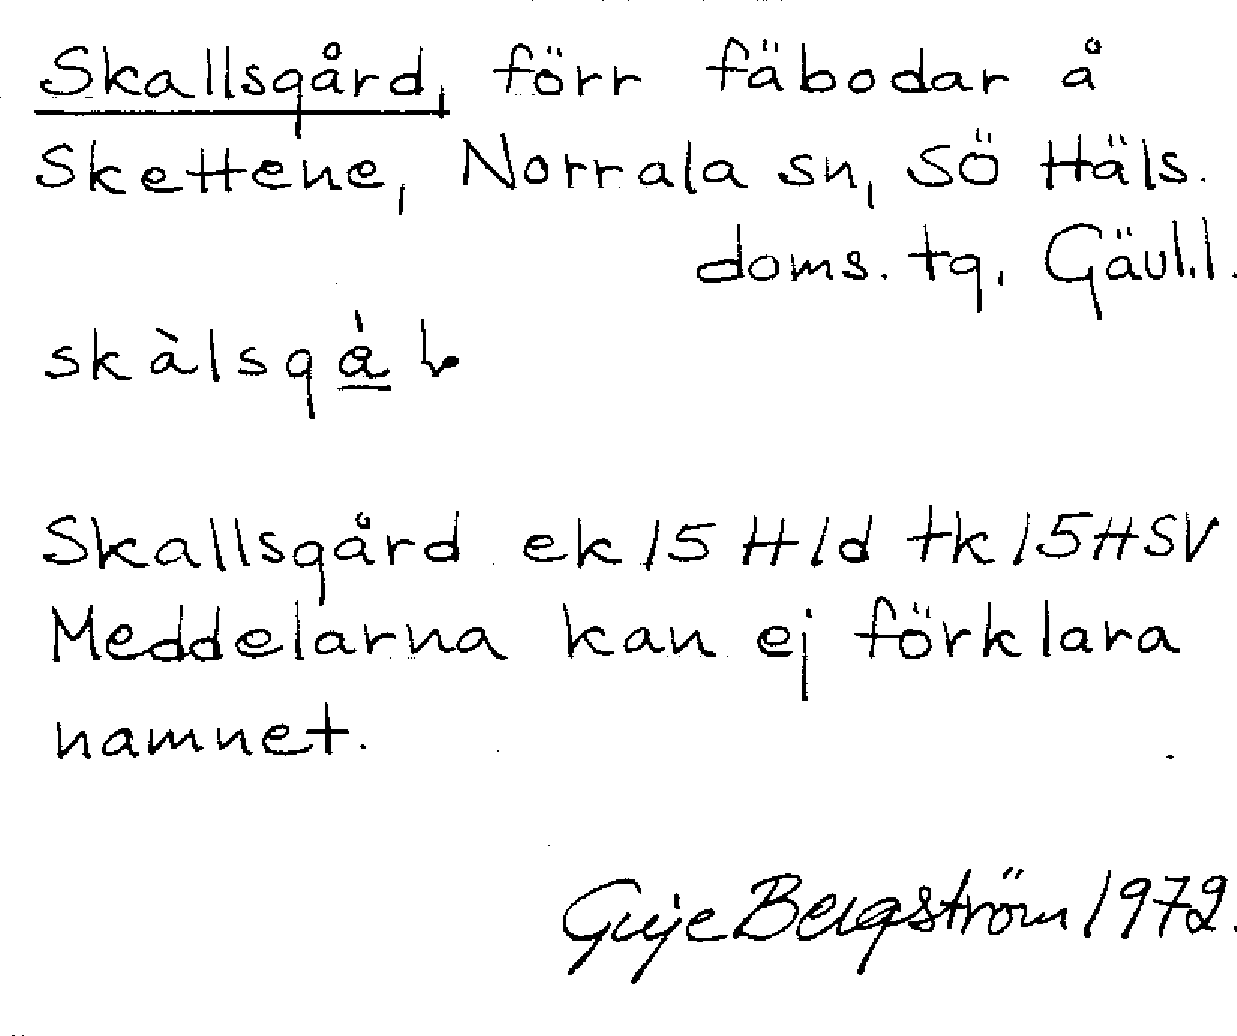 Skallsgård, förr fäbodar å
Skettene, Norrala sn, Sö Häls.
doms. tg, Gävl.l.
Skallsgård ek 15 H 1d tk 15HSV
Meddelarna kan ej förklara
namnet.
Bergström 1972.